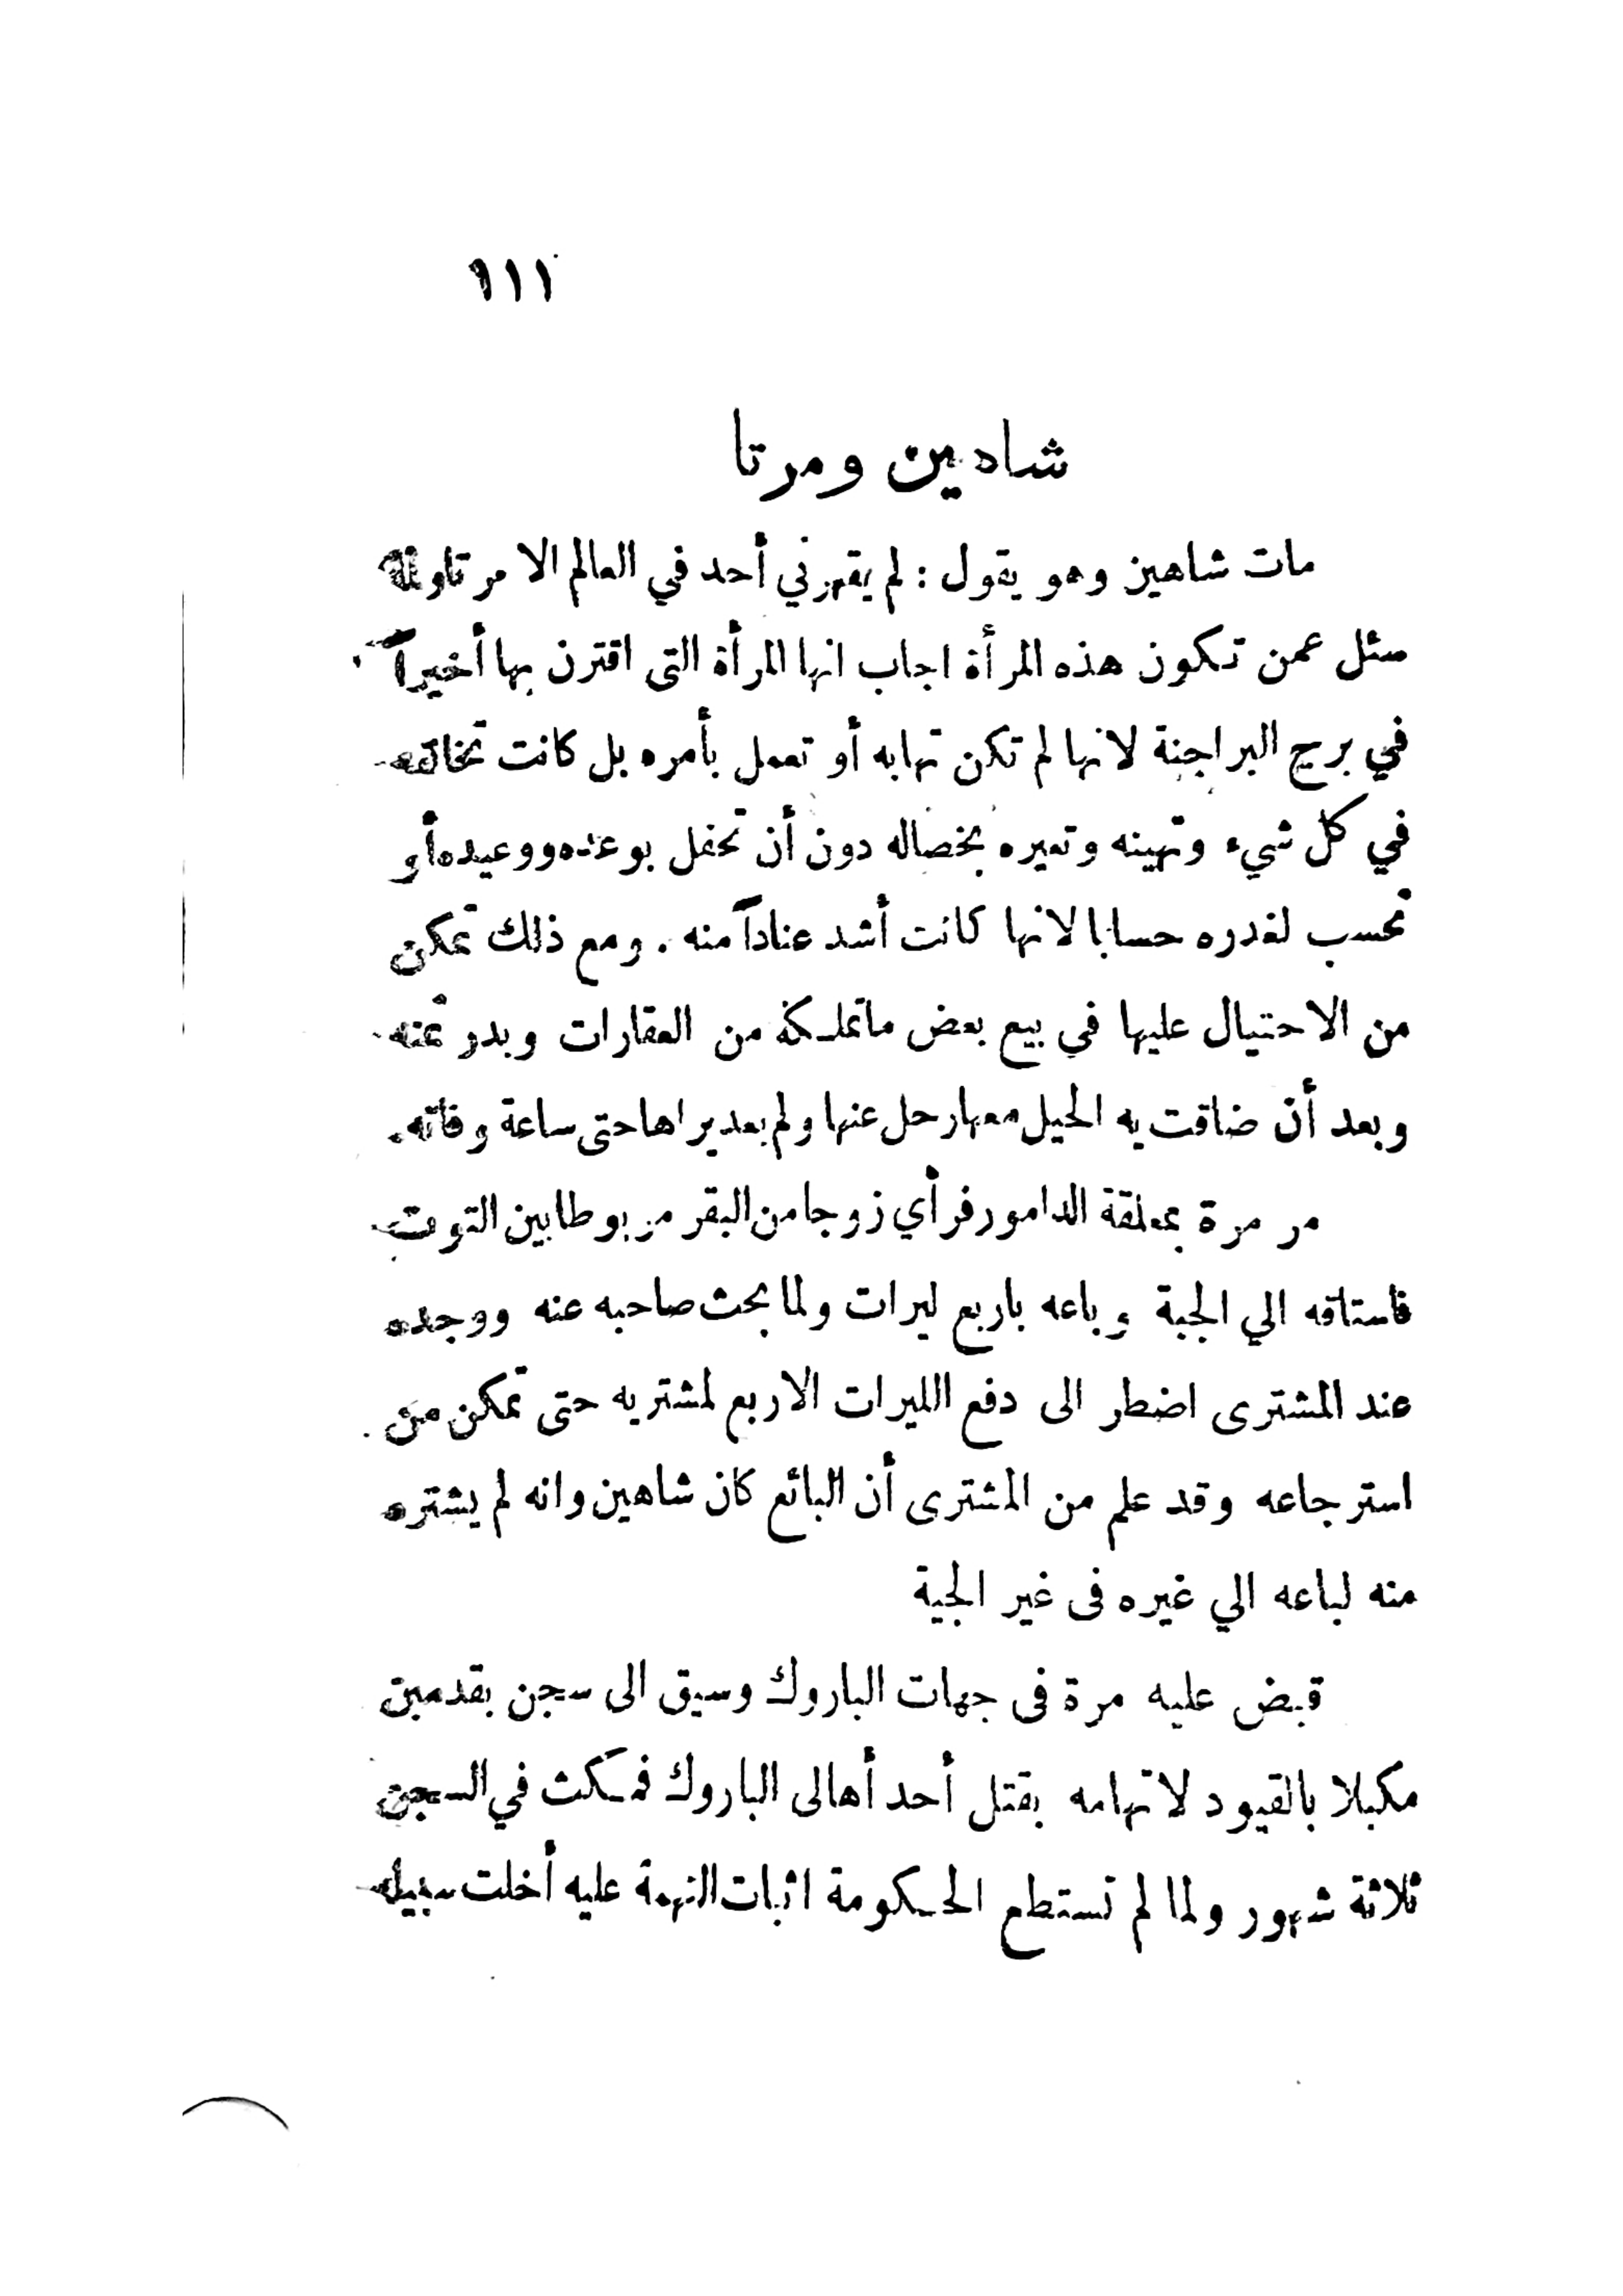 ١١١
شاهين ومرتا
مات شاهين وهو يقول : لم يقهرني أحد في العالم الا مرتا ولما
سئل عمن تكون هذه المرأة اجاب انها المرأة التى اقترن بها أخيراً
في برج البراجنة لانها لم تكن تهابه أو تعمل بأمره بل كانت تخالفه
في كل شيء وتهينه وتعيره بخصاله دون أن تحفل بوعده ووعيده أو
تحسب لغدره حسابا لانها كانت أشد عناداً منه . ومع ذلك تمكن
من الاحتيال عليها في بيع بعض ماتملكه من العقارات وبدو
وبعد أن ضاقت به الحيل معها رحل عنها ولم يعد يراها حتى ساعة وفاته .
مر مرة بمعلقة الدامور فرأي زوجا من البقر مربوطا بين التوت
فاستاقه الي الجية وباعه باربع ليرات ولما بحث صاحبه عنه ووجده
عند المشترى اضطر الى دفع الليرات الاربع لمشتريه حتى تمكن من
استرجاعه وقد علم من المشترى أن البائع كان شاهين وانه لم يشتره
منه لباعه الي غيره فى غير الجية
قبض عليه مرة فى جهات الباروك وسيق الى سجن بقدمين
مكبلا بالقيود لاتهامه بقتل أحد أهالى الباروك فمكث في السجن
ثلاثة شهور ولما لم تستطع الحكومة اثبات التهمة عليه أخلت سبيله